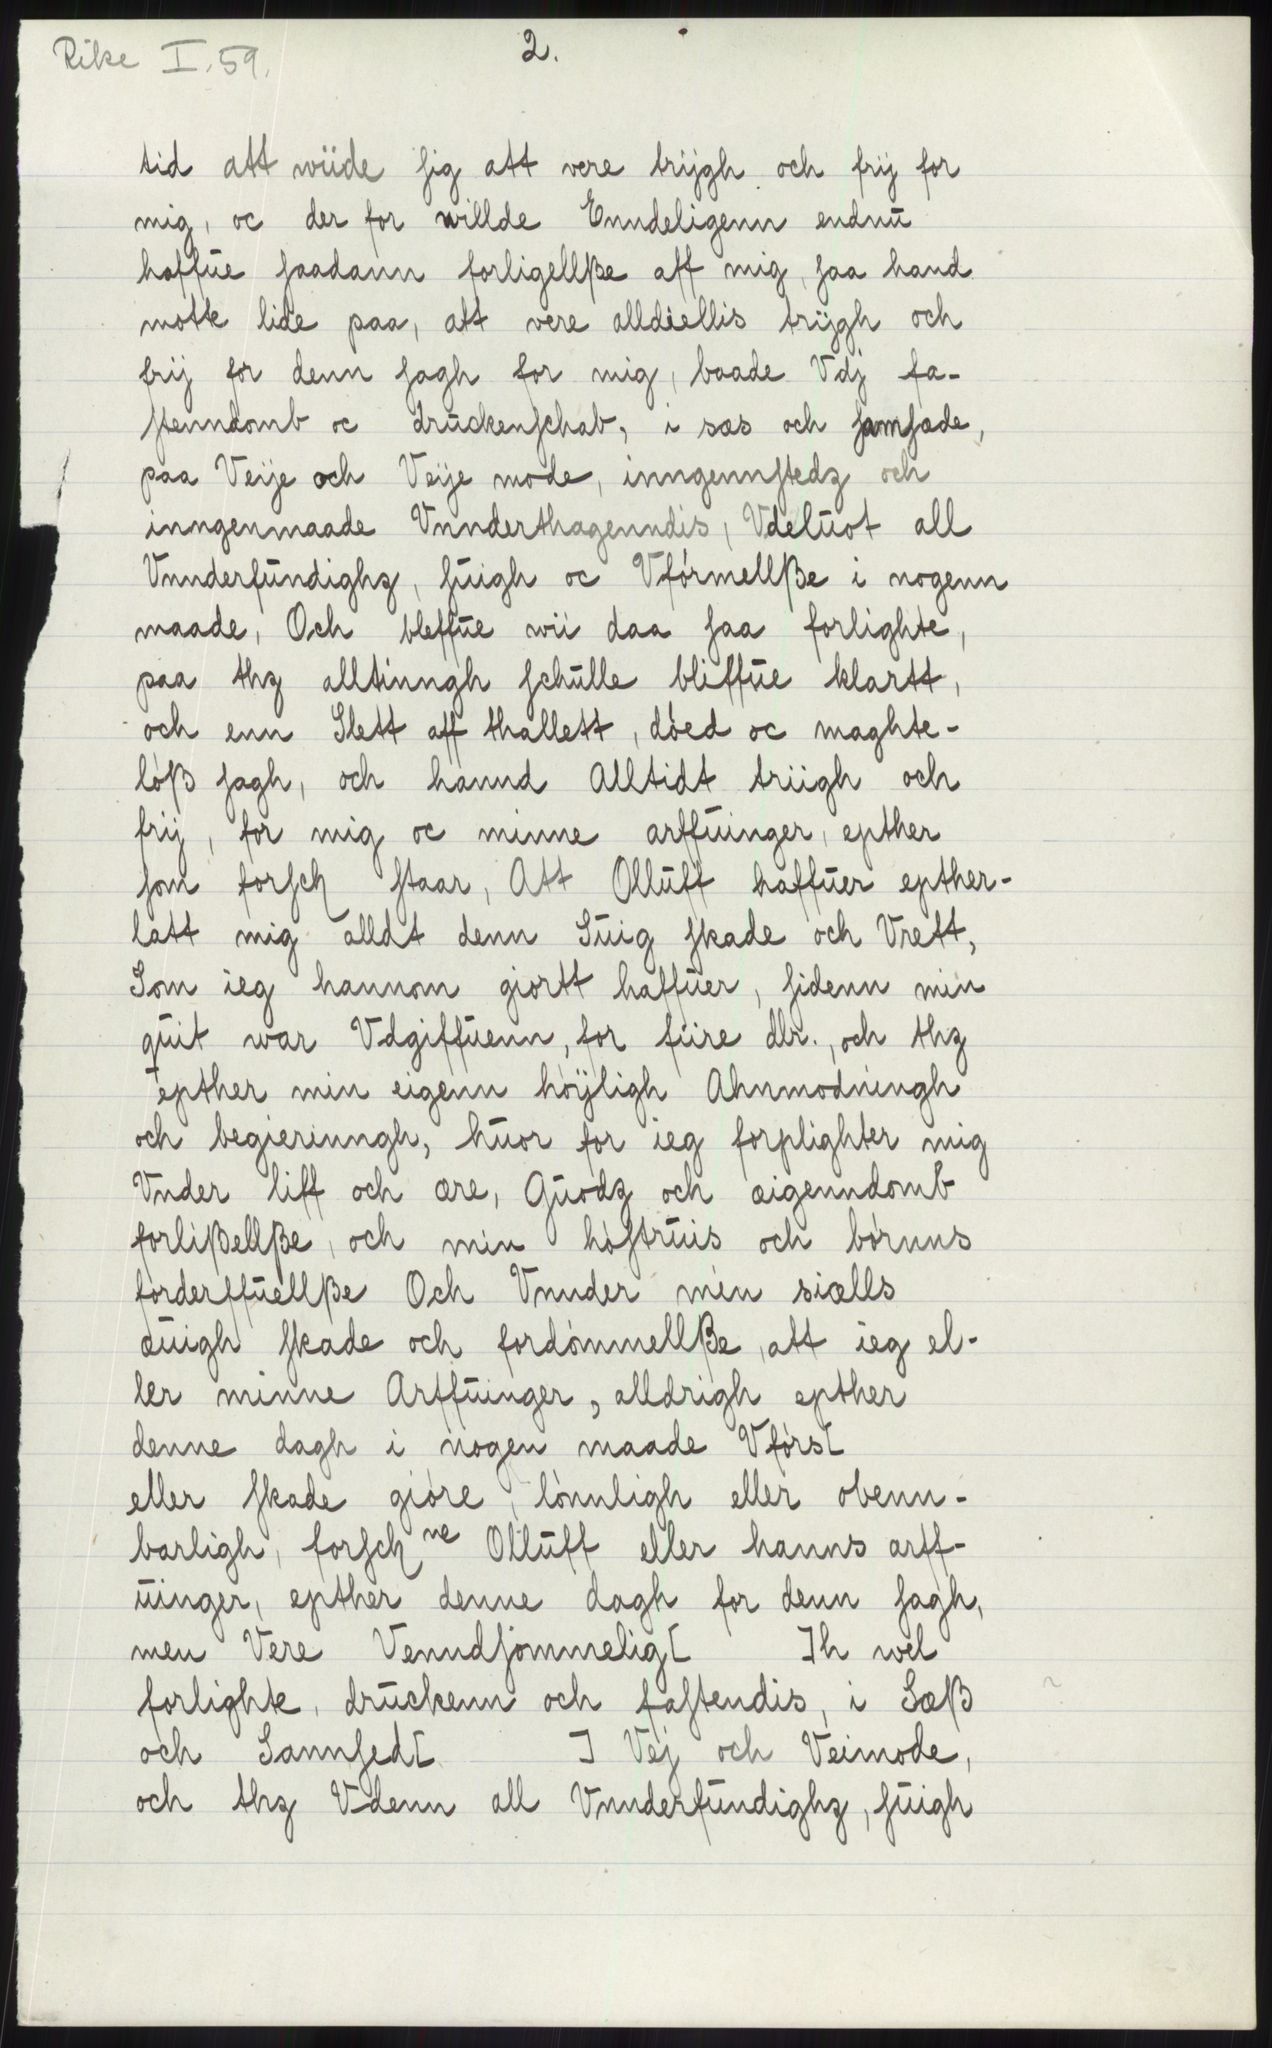 Rike I. 59.
2.
tid att wüde sig att vere trijgh och frij for
mig, oc der for willde Enndeligenn endnu
haffue saadann forligellße aff mig, saa hand
motte lide paa, att vere alldiellis trijgh och
frij for denn sagh for mig, baade Vdj fa-
stenndomb oc druckenschab, i sæs och samsæde,
paa Veije och Veije mode, inngennstedz och
inngenmaade Vnnderthagenndis, Vdeluot all
Vnnderfundighz, suigh oc Vfórmellße i nogenn
maade, Och bleffue wii daa saa forlighte,
paa thz alltinngh schulle bliffue klartt,
och enn Slett aff thallett, dóed oc maghte-
lóß sagh, och hannd Alltidt triigh och
frij, for mig oc minne arffuinger, epther
som forsch staar, Att Olluff haffuer epther-
latt mig alldt denn Suig skade och Vrett,
Som ieg hannom giortt haffuer, sidenn min
quit war Vdgiffuenn, for fiire dlr., och thz
epther min eigenn hóyligh Ahnmodningh
och begierinngh, huor for ieg forplighter mig
Vnder liff och ære, Guodz och æigenndomb
forlißellße, och min hóstruis och bórnns
forderffuellße Och Vnnder min siælls
æuigh skade och fordómmellße, att ieg el-
ler minne Arffuinger, alldrigh epther
denne dagh i nogen maade Vførs[
eller skade gióre, lónnligh eller obenn-
barligh, forsch ne Olluff eller hanns arff-
uinger, epther denne dagh for denn sagh,
men Vere Venndsómmelig[ ]h wel
forlighte, druckenn och fastendis, i Sæß
och Sannsed[ ] Vej och Veimode,
och thz Vdenn all Vnnderfundighz, suigh